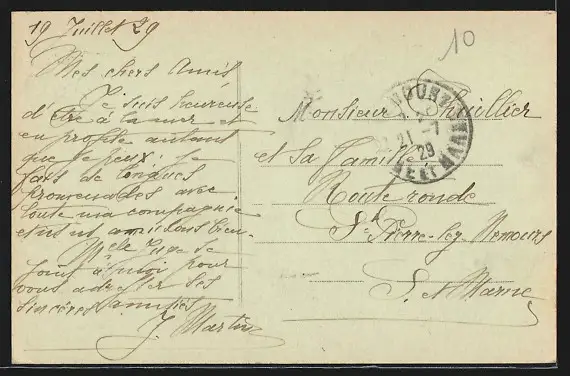 19 Juillet 29
Mes chers Amis
Je suis heureuse
d'être à la mer et
en profite autant
que je peux. Je
fais de longues
promenades avec
toute ma compagnie
et nous amusons bien.
Melle Juge se
joint à moi pour
vous adresser ses
sincères amitiés
J. Martin
10
Monsieur Thuillier
et sa famille
Route ronde
St Pierre-lez Nemours
S. et Marne
21-7
29